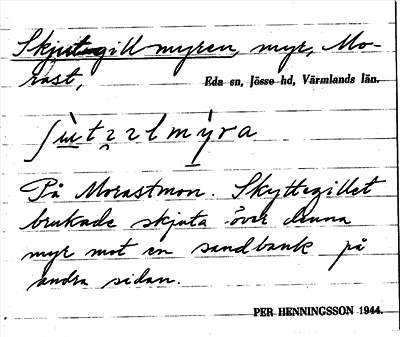 Skjutegillmyren, myr, Mo-
rast,
Eda sn, Jösse hd, Värmlands län.
På Morastmon. Skyttegillet
brukade skjuta över denna
myr mot en sandbank på
andra sidan.
PER HENNINGSSON 1944.